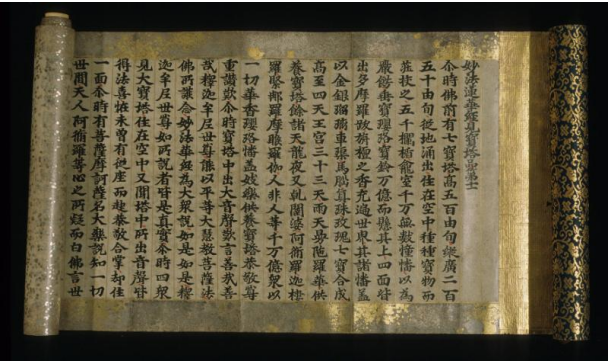 妙法蓮華經見寶塔品第十一
尒時佛前有七寶塔高五百由旬縱廣二百
五十由旬從地涌出住在空中種種寶物而
莊挍之五千欄楯龕室千万無數幢幡以為
嚴飾垂寶瓔珞寶鈴万億而懸其上四面皆
出多摩羅跋栴檀之香充遍世界其諸幡蓋
以金銀瑠璃車璖馬瑙真珠玫瑰七寶合成
高至四天王宮三十三天雨天曼陁羅華供
養寶塔餘諸天龍夜叉乹闥婆阿脩羅迦樓
羅緊那羅摩睺羅伽人非人等千万億衆以
一切華香瓔珞幡蓋妓樂供養寶塔恭敬尊
重讃歎尒時寶塔中出大音聲歎言善哉善
哉釋迦牟尼世尊能以平等大慧教菩薩法
佛所護念妙法華經為大衆說如是如是釋
迦牟尼世尊如所說者皆是真實尒時四衆
見大寶塔住在空中又聞塔中所出音聲皆
得法喜恠未曾有從座而起恭敬合掌却住
一面尒時有菩薩摩訶薩名大樂說知一切
世間天人阿脩羅等心之所疑而白佛言世